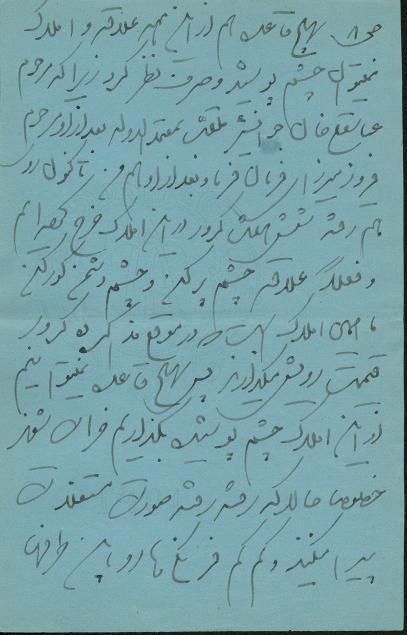 ص ۸ بهیچ قاعده هم از این همه علاقه و املاک
نمیتوان چشم پوشید و صرف نظر کرد زیرا که مرحوم
عباسقلی خان جوانشیر ملقب بمعتمدالدوله بعد از او مرحوم
فیروز میرزا فرمان فرما و بعد از او هم تا کنون روی
هم رفته کرور در این املاک خرج کرده‌ایم
و علاقه چشم پر کن و چشم دشمن کور کن
ما همین املاک است که در موقع مذاکره ده کرور
قیمت رویش میگذارند پس بهیچ قاعده نمیتوانیم
از این املاک چشم پوشیده بگذاریم خراب شود
خصوصا حالا که رفته رفته صورت
پیدا میکند و کم کم فرنگی‌ها رو باین طرفها